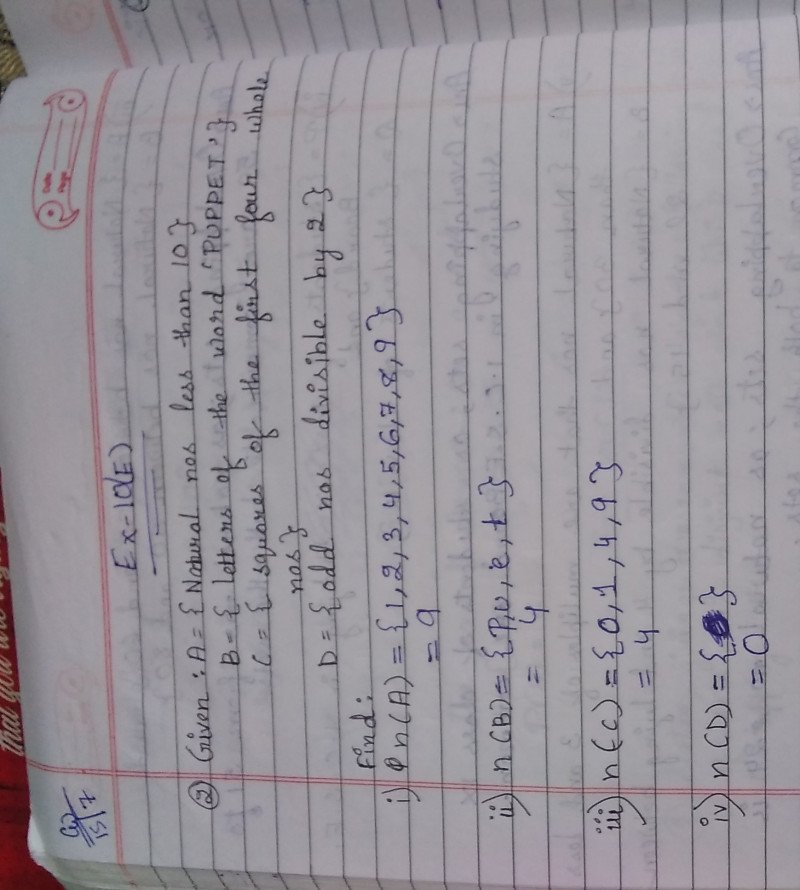 Date
Page
Ex-10(E)
② Given : A = { Natural nos less than 10 }
B = { letters of the word 'PUPPET' }
C = { squares of the first four whole
nos }
D = { odd nos divisible by 2 }
Find :
i) n(A) = {1, 2, 3, 4, 5, 6, 7, 8, 9}
= 9
ii) n(B) = {P, u, e, t}
= 4
iii) n(C) = {0, 1, 4, 9}
= 4
iv) n(D) = { }
= 0